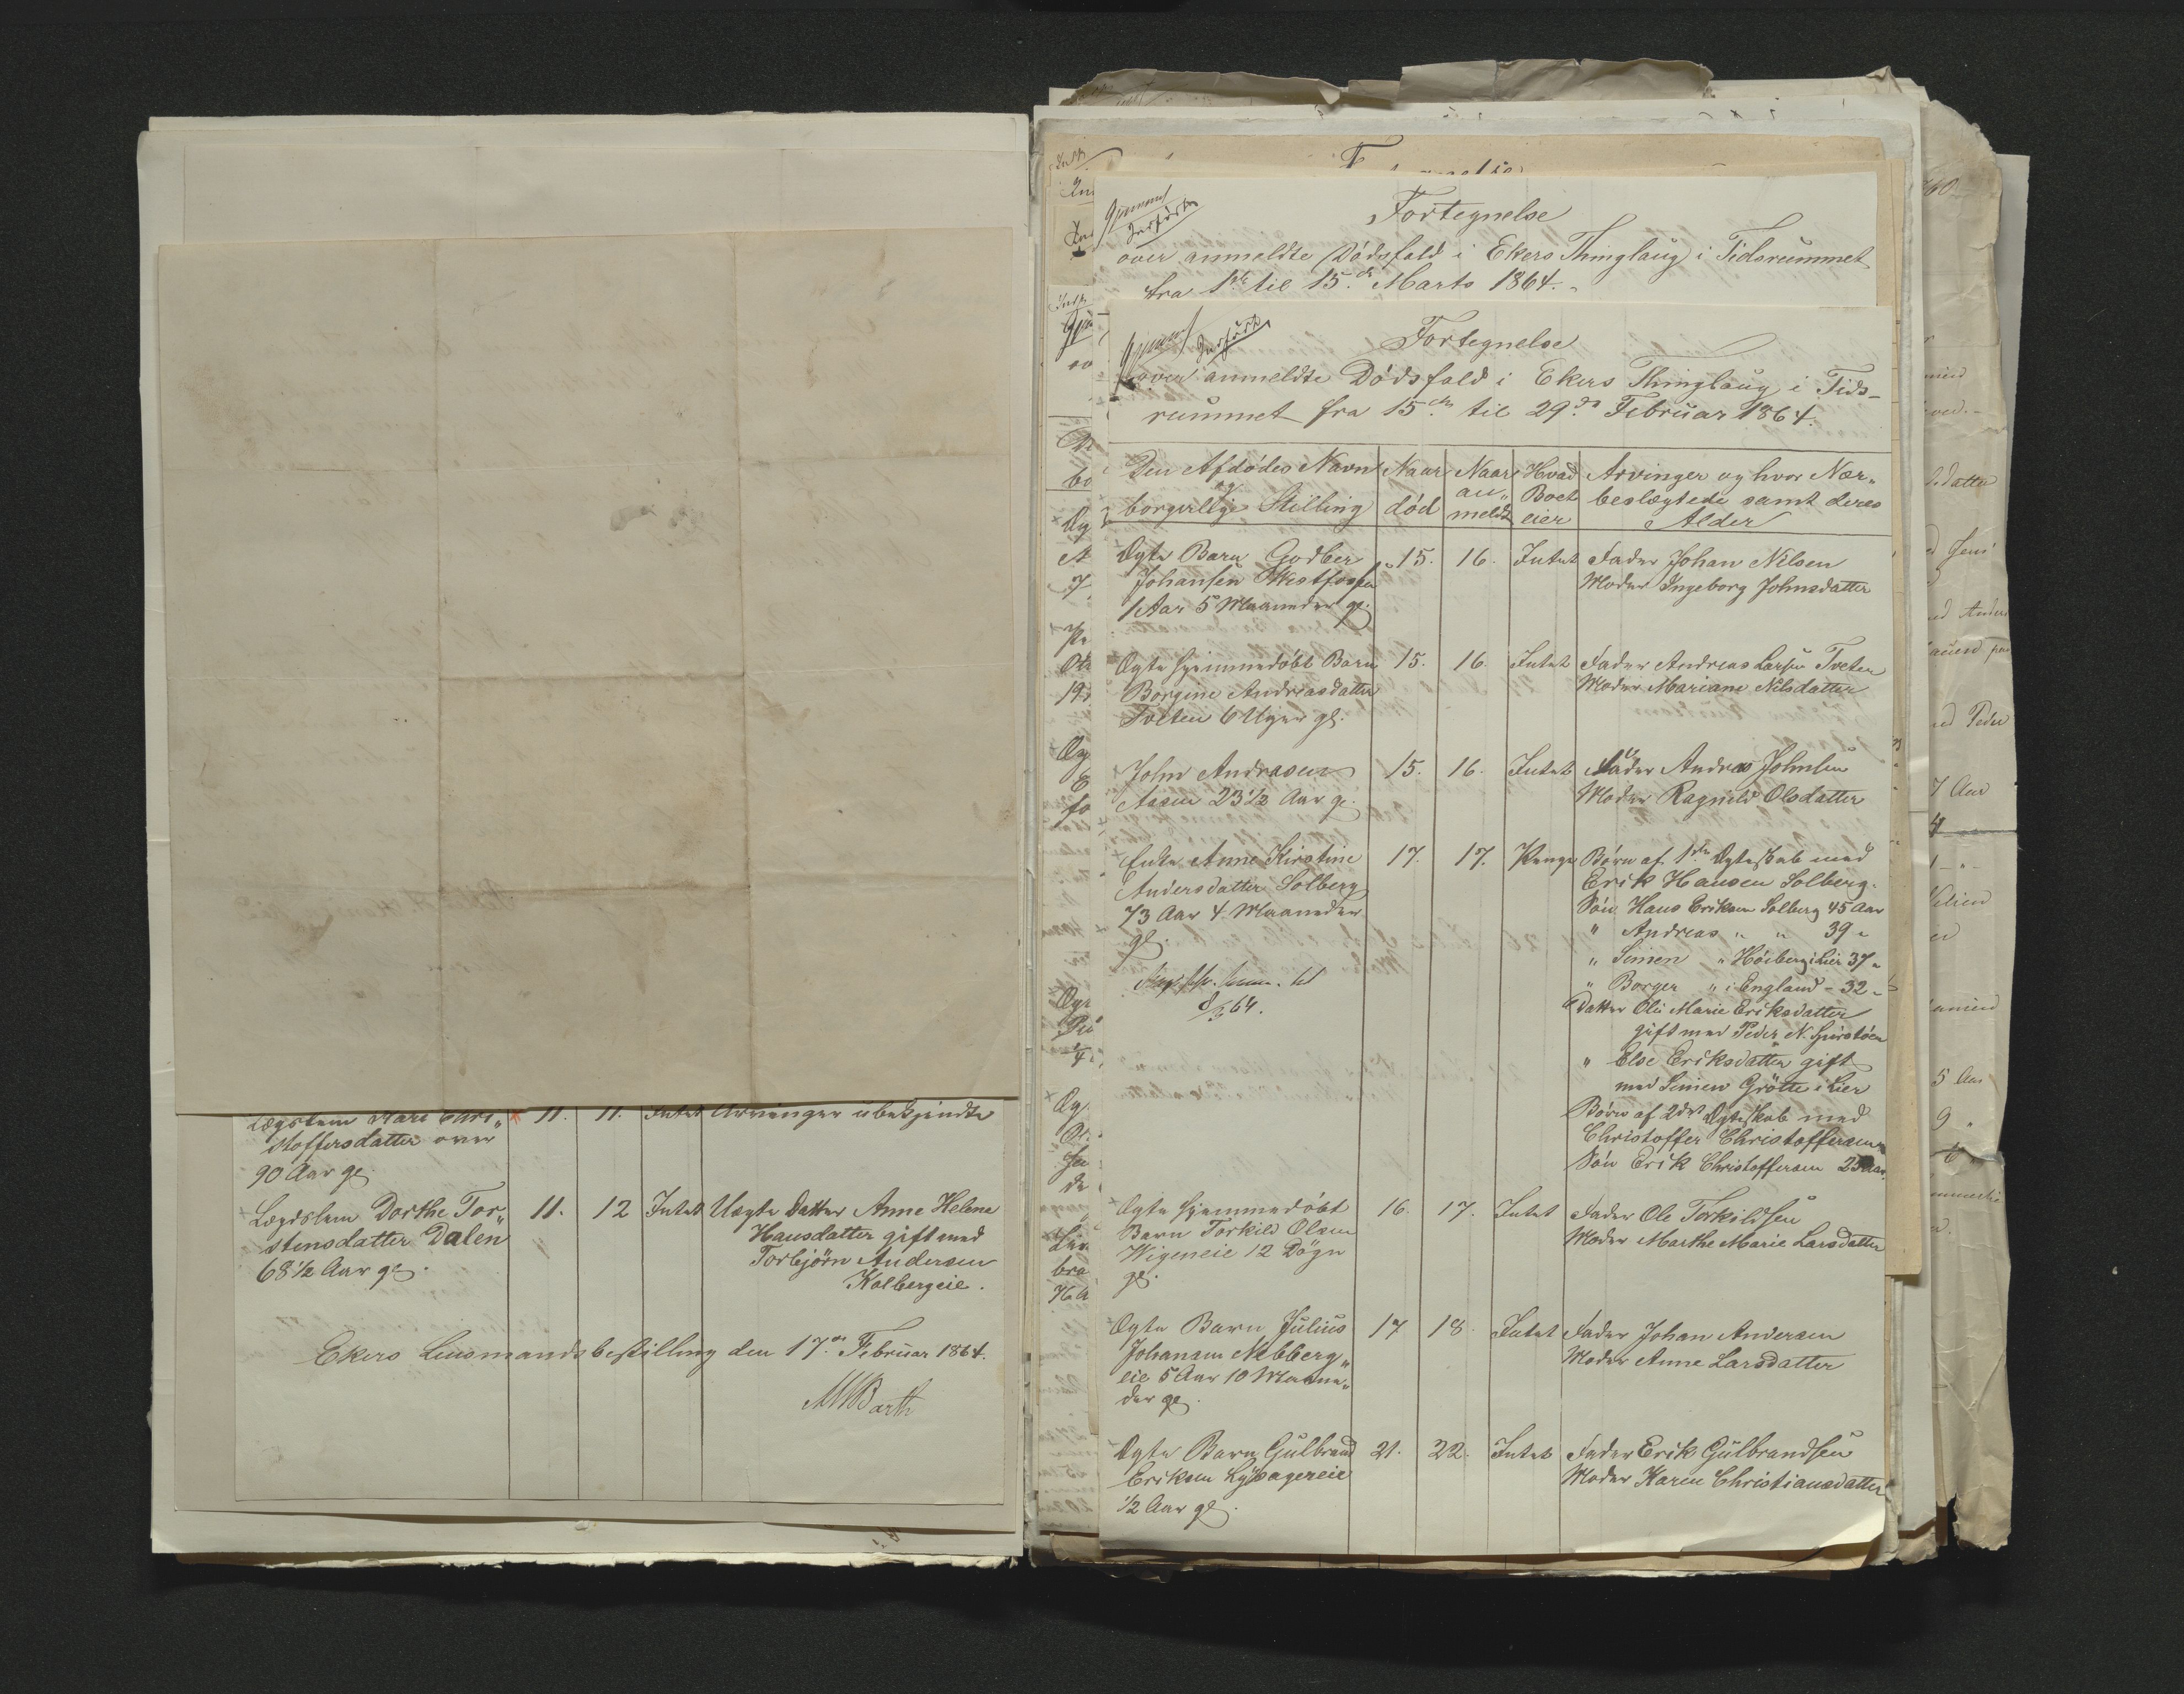 Lægslem Kari Chri„ 11. 11. Intet Arvinger ubekjendte
stoffersdatter over
90 Aar gl.
Lægdslem Dorthe Tor„ 11. 12 Intet Uægte Datter Anne Helene
stensdatter Dalen Hansdatter gift med
68 1/2 Aar gl. Torbjörn Andersen
Kolbergeie.
Ekers Lensmandsbestilling den 17de Februar 1864.
MWBarth
Fortegnelse
over anmeldte Dödsfald i Ekers Thinglaug i Tidsrummet
fra 1ste til 15de Marts 1864.
Fortegnelse
over anmeldte Dödsfald i Ekers Thinglaug i Tids-
rummet fra 15de til 29de Februar 1864.
Den Afdödes Navn Naar Naar Hvad Arvinger og hvor Nær„
og an„ Boet beslægtede samt deres
borgerlige Stilling död meldt eier Alder
Ægte Barn Godber 15. 16. Intet Fader Johan Nilsen
Johansen Westfossen Moder Ingeborg Johnsdatter
1 Aar 5 Maaneder gl.
Ægte hjemmedöbt Barn 15. 16. Intet Fader Andreas Larsen Tveten
Borgine Andreasdatter Moder Mariane Nilsdatter
Tveten 6 Uger gl.
John Andreasen 15. 16. Intet Fader Andreas Johnsen
Aasen 23 1/2 Aar gl. Moder Ragnild Olsdatter
Enke Anne Kirstine 17. 17. Penge Börn af 1ste Ægteskab med
Andersdatter Solberg Erik Hansen Solberg.
73 Aar 4 Maaneder Sön Hans Eriksen Solberg 45 Aar
gl. " Andreas " " 39 "
" Simen " Höiberg i Lier 37 "
" Borger " i England - 32 "
8/3 64.
Datter Oli Marie Eriksdatter
gift med Peder N.
" Else Eriksdatter gift
med Simen Grötte i Lier
Börn af 2det Ægteskab med
Christoffer Christoffersen
Sön Erik Christoffersen 25 Aar.
Ægte hjemmedöbt 16. 17. Intet Fader Ole Torkildsen
Barn Torkild Olsen Moder Marthe Marie Larsdatter
Wigeneie 12 Dögn
gl.
Ægte Barn Julius 17 18. Intet Fader Johan Andersen
Johansen Nebberg„ Moder Anne Larsdatter
eie 5 Aar 10 Maane„
der gl.
Ægte Barn Gulbrand 21. 22. Intet Fader Erik Gulbrandsen
Eriksen Lysagereie Moder Karen Christiansdatter
1/2 Aar gl.